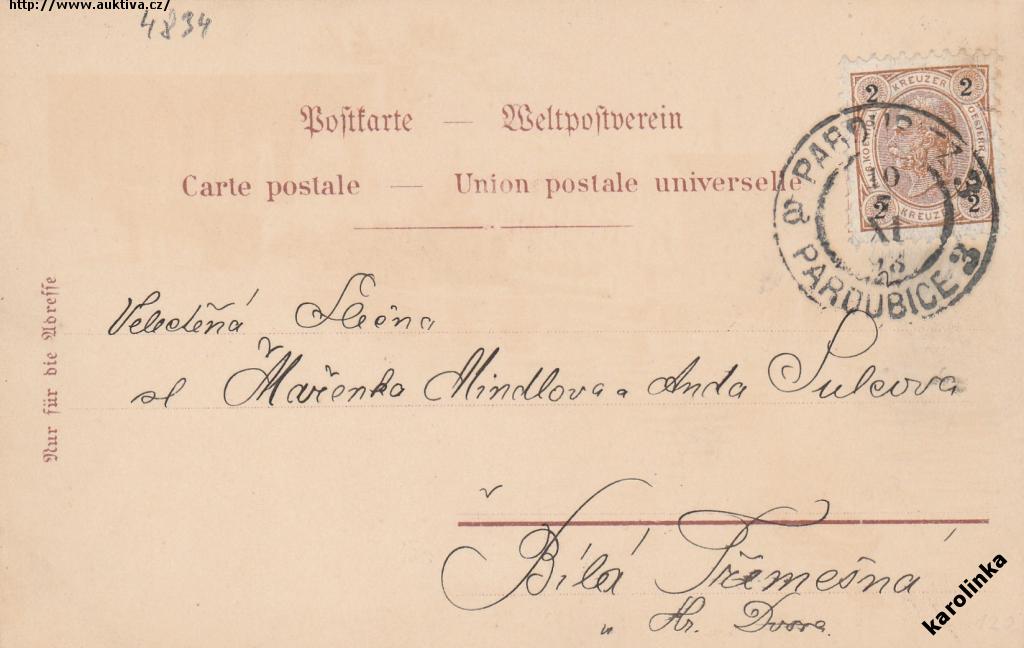 http://www.auktiva.cz/
4834
Postkarte — Weltpostverein
Carte postale — Union postale universelle
2 KREUZER 2
2 KREUZER 2
PARDUBITZ 3
10
5
XI
98
PARDUBICE 3
Nur für die Adresse
Veletěná Slečna
sl Mařenka Mindlova a Anda Sulcova
Bílá Třemešná
u Kr. Dvora
karolinka